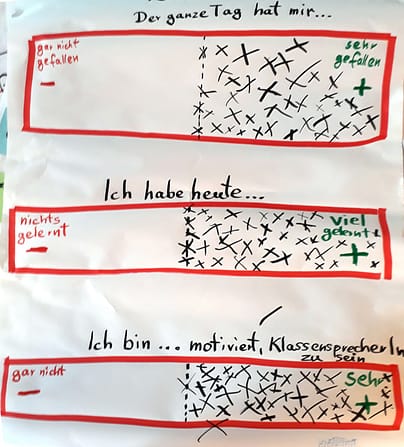 Der ganze Tag hat mir...
gar nicht
gefallen
-
sehr
gefallen
+
Ich habe heute...
nichts
gelernt
-
viel
gelernt
+
Ich bin ... motiviert, KlassensprecherIn
zu sein
gar nicht
-
Sehr
+